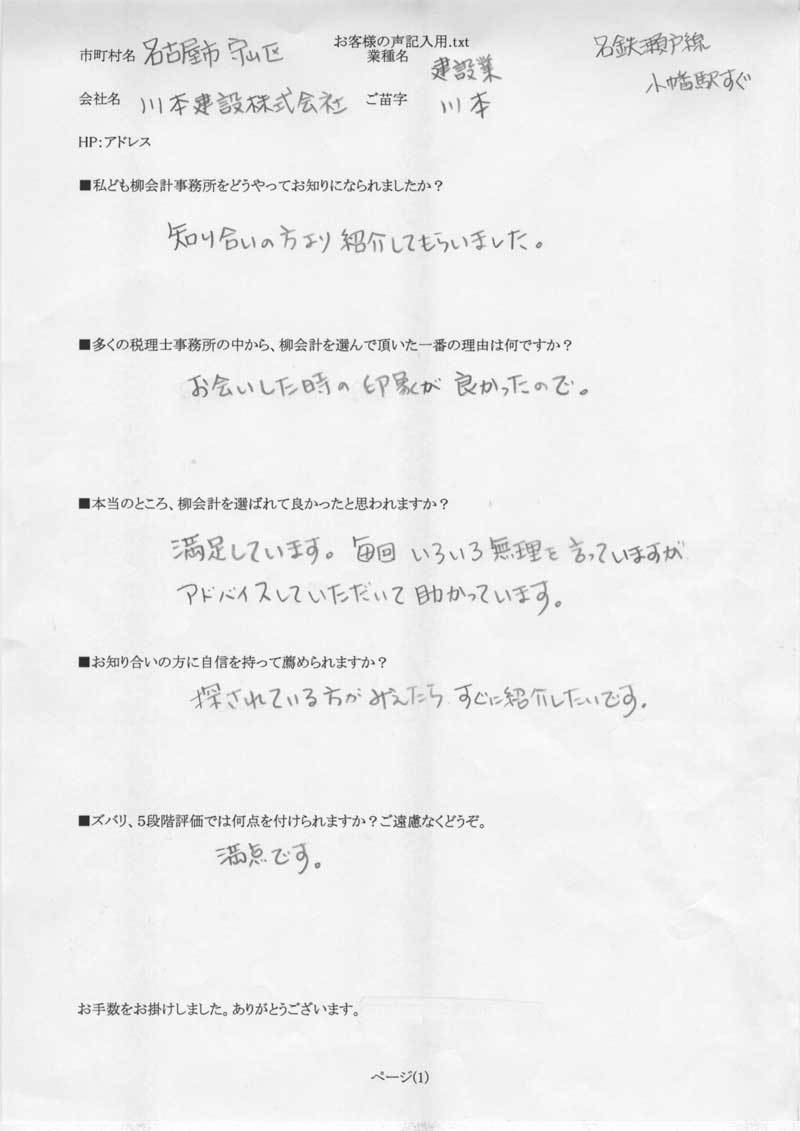 お客様の声記入用.txt
市町村名 名古屋市守山区 業種名 建設業
名鉄瀬戸線
小幡駅すぐ
会社名 川本建設株式会社 ご苗字 川本
HP:アドレス
■私ども柳会計事務所をどうやってお知りになられましたか?
知り合いの方より紹介してもらいました。
■多くの税理士事務所の中から、柳会計を選んで頂いた一番の理由は何ですか?
お会いした時の印象が良かったので。
■本当のところ、柳会計を選ばれて良かったと思われますか?
満足しています。毎回いろいろ無理を言っていますが
アドバイスしていただいて助かっています。
■お知り合いの方に自信を持って薦められますか?
探されている方がみえたらすぐに紹介したいです。
■ズバリ、5段階評価では何点を付けられますか?ご遠慮なくどうぞ。
満点です。
お手数をお掛けしました。ありがとうございます。
ページ(1)